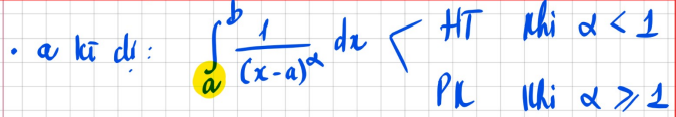 • a kì dị: ∫_a^b 1/(x-a)^α dx < HT khi α < 1
PK khi α ⩾ 1